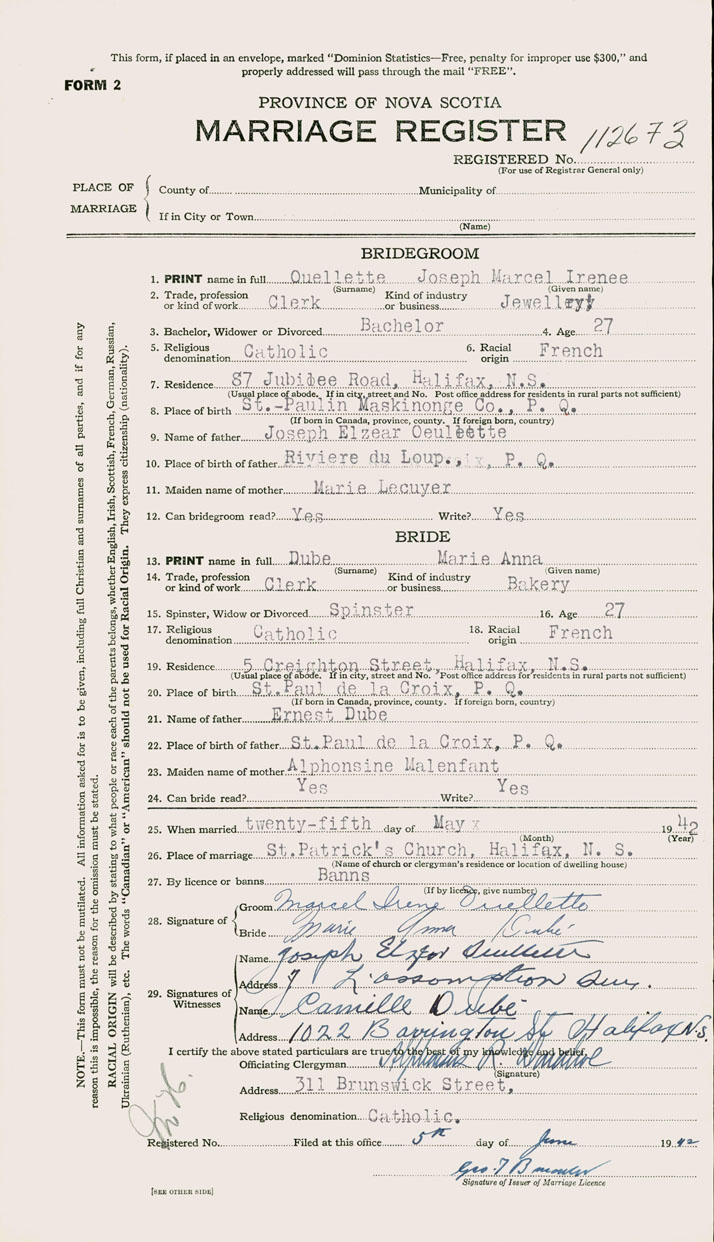 This form, if placed in an envelope, marked "Dominion Statistics—Free, penalty for improper use $300," and
properly addressed will pass through the mail "FREE".
FORM 2
PROVINCE OF NOVA SCOTIA
MARRIAGE REGISTER 112673
REGISTERED No.
(For use of Registrar General only)
PLACE OF MARRIAGE
County of Municipality of
If in City or Town
(Name)
BRIDEGROOM
1. PRINT name in full Ouellette Joseph Marcel Irenee
(Surname) (Given name)
2. Trade, profession or kind of work Clerk Kind of industry or business Jewellry
3. Bachelor, Widower or Divorced Bachelor 4. Age 27
5. Religious denomination Catholic 6. Racial origin French
7. Residence 87 Jubilee Road, Halifax, N.S.
(Usual place of abode. If in city, street and No. Post office address for residents in rural parts not sufficient)
8. Place of birth St.-Paulin Maskinonge Co., P. Q.
(If born in Canada, province, county. If foreign born, country)
9. Name of father Joseph Elzear Oeullette
10. Place of birth of father Riviere du Loup., P. Q.
11. Maiden name of mother Marie Lecuyer
12. Can bridegroom read? Yes Write? Yes
BRIDE
13. PRINT name in full Dube Marie Anna
(Surname) (Given name)
14. Trade, profession or kind of work Clerk Kind of industry or business Bakery
15. Spinster, Widow or Divorced Spinster 16. Age 27
17. Religious denomination Catholic 18. Racial origin French
19. Residence 5 Creighton Street, Halifax, N.S.
(Usual place of abode. If in city, street and No. Post office address for residents in rural parts not sufficient)
20. Place of birth St.Paul de la Croix, P. Q.
(If born in Canada, province, county. If foreign born, country)
21. Name of father Ernest Dube
22. Place of birth of father St.Paul de la Croix, P. Q.
23. Maiden name of mother Alphonsine Malenfant
24. Can bride read? Yes Write? Yes
25. When married twenty-fifth day of May 1942
(Month) (Year)
26. Place of marriage St.Patrick's Church, Halifax, N. S.
(Name of church or clergyman's residence or location of dwelling house)
27. By licence or banns Banns
(If by licence, give number)
28. Signature of
Groom Marcel Irene Ouellette
Bride Marie Anna Dubé
29. Signatures of Witnesses
Name Joseph Elzéar Ouellette
Address 7 L'assomption
Name Camille Dubé
Address 1022 Barrington St Halifax N.S.
I certify the above stated particulars are true to the best of my knowledge and belief.
Officiating Clergyman
(Signature)
Address 311 Brunswick Street,
Religious denomination Catholic.
Registered No. Filed at this office 5th day of June 1942
Geo. T
Signature of Issuer of Marriage Licence
[SEE OTHER SIDE]
NOTE.—This form must not be mutilated. All information asked for is to be given, including full Christian and surnames of all parties, and if for any
reason this is impossible, the reason for the omission must be stated.
RACIAL ORIGIN will be described by stating to what people or race each of the parents belongs, whether English, Irish, Scottish, French, German, Russian,
Ukrainian (Ruthenian), etc. The words "Canadian" or "American" should not be used for Racial Origin. They express citizenship (nationality).